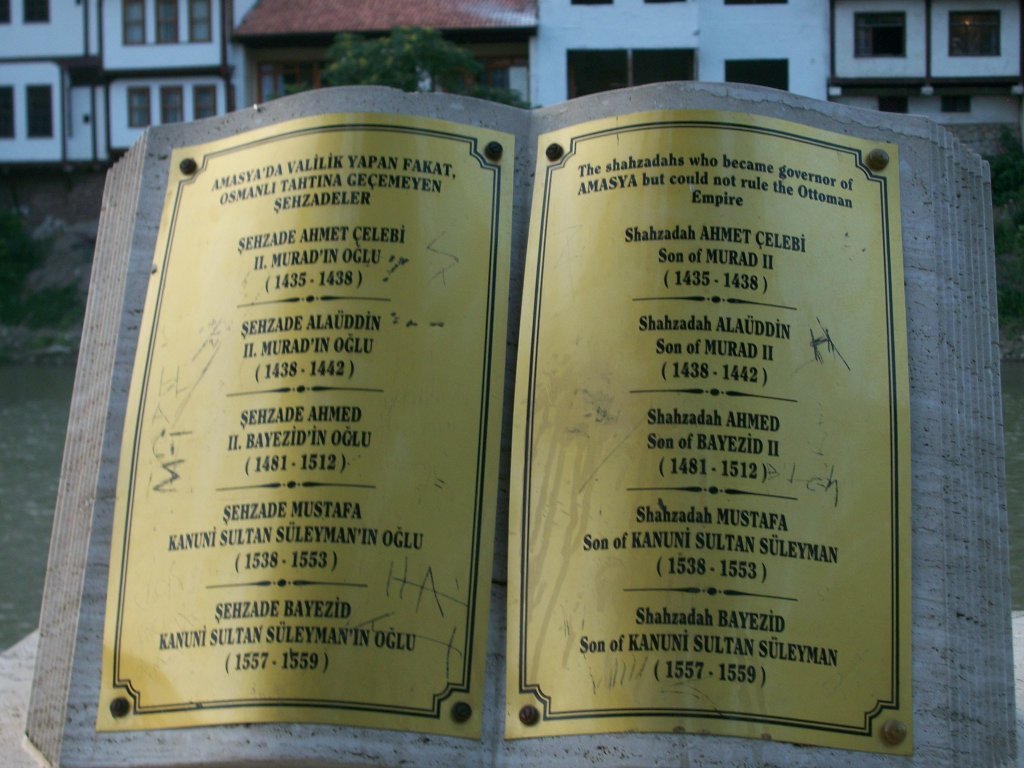 AMASYA'DA VALİLİK YAPAN FAKAT,
OSMANLI TAHTINA GEÇEMEYEN
ŞEHZADELER
ŞEHZADE AHMET ÇELEBİ
II. MURAD'IN OĞLU
( 1435 - 1438 )
ŞEHZADE ALAÜDDİN
II. MURAD'IN OĞLU
( 1438 - 1442 )
ŞEHZADE AHMED
II. BAYEZİD'İN OĞLU
( 1481 - 1512 )
ŞEHZADE MUSTAFA
KANUNİ SULTAN SÜLEYMAN'IN OĞLU
( 1538 - 1553 )
ŞEHZADE BAYEZİD
KANUNİ SULTAN SÜLEYMAN'IN OĞLU
( 1557 - 1559 )
The shahzadahs who became governor of
AMASYA but could not rule the Ottoman
Empire
Shahzadah AHMET ÇELEBİ
Son of MURAD II
( 1435 - 1438 )
Shahzadah ALAÜDDİN
Son of MURAD II
( 1438 - 1442 )
Shahzadah AHMED
Son of BAYEZİD II
( 1481 - 1512 )
Shahzadah MUSTAFA
Son of KANUNİ SULTAN SÜLEYMAN
( 1538 - 1553 )
Shahzadah BAYEZİD
Son of KANUNİ SULTAN SÜLEYMAN
( 1557 - 1559 )